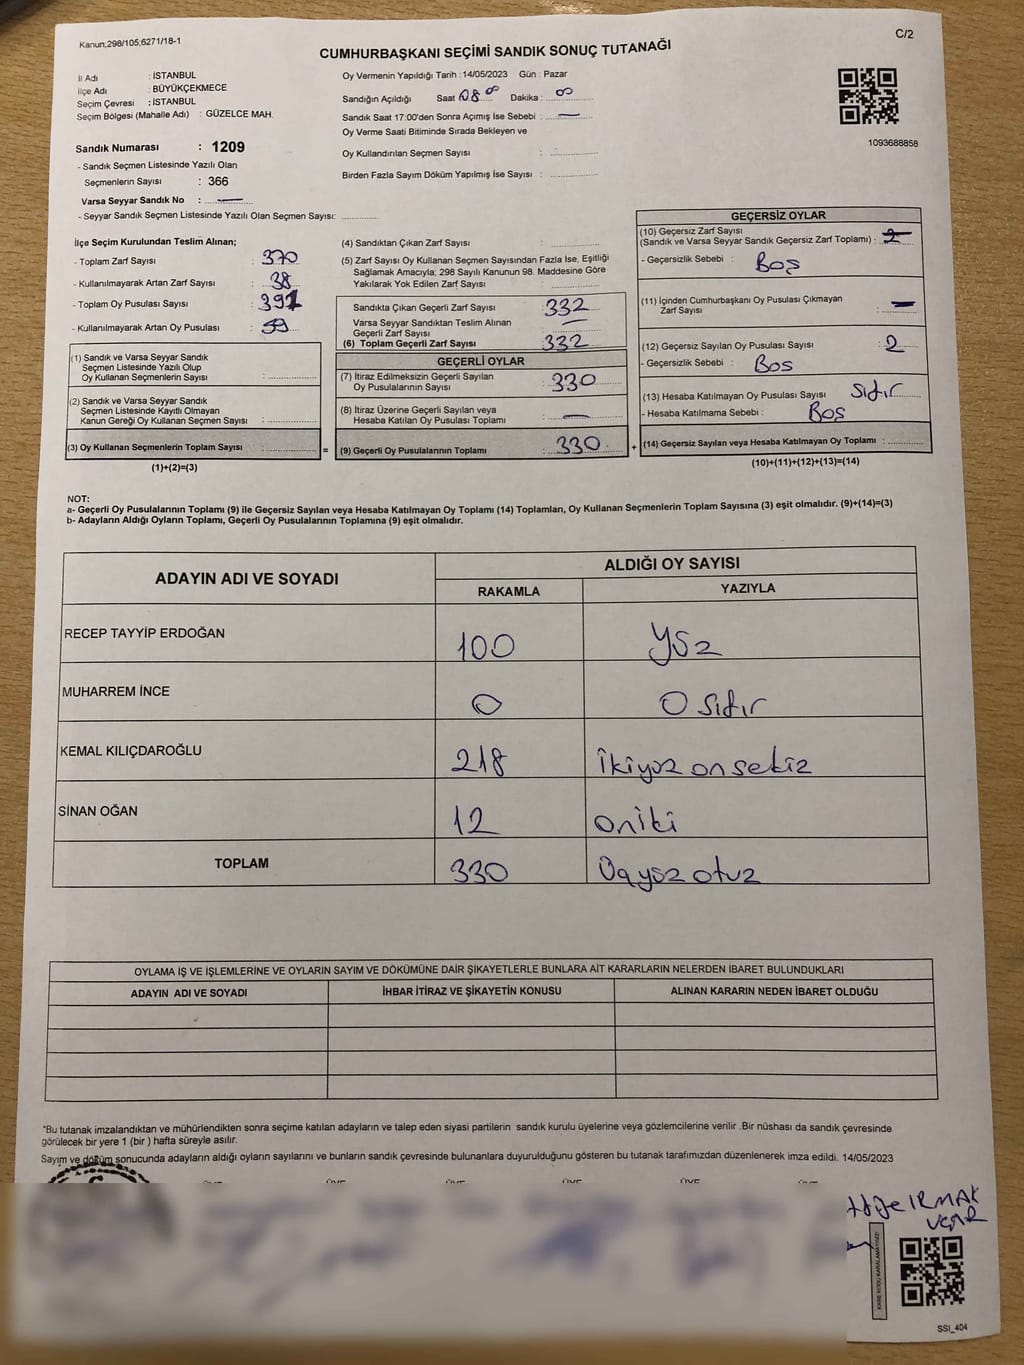 Kanun;298/105;6271/18-1
C/2
CUMHURBAŞKANI SEÇİMİ SANDIK SONUÇ TUTANAĞI
İl Adı : İSTANBUL
İlçe Adı : BÜYÜKÇEKMECE
Seçim Çevresi : İSTANBUL
Seçim Bölgesi (Mahalle Adı) : GÜZELCE MAH.
Sandık Numarası : 1209
- Sandık Seçmen Listesinde Yazılı Olan
Seçmenlerin Sayısı : 366
Varsa Seyyar Sandık No : —
- Seyyar Sandık Seçmen Listesinde Yazılı Olan Seçmen Sayısı:
Oy Vermenin Yapıldığı Tarih : 14/05/2023 Gün : Pazar
Sandığın Açıldığı Saat 08 00 Dakika : 00
Sandık Saat 17:00'den Sonra Açımış İse Sebebi : —
Oy Verme Saati Bitiminde Sırada Bekleyen ve
Oy Kullandırılan Seçmen Sayısı :
Birden Fazla Sayım Döküm Yapılmış İse Sayısı :
1093688858
İlçe Seçim Kurulundan Teslim Alınan;
- Toplam Zarf Sayısı : 370
- Kullanılmayarak Artan Zarf Sayısı : 38
- Toplam Oy Pusulası Sayısı : 391
- Kullanılmayarak Artan Oy Pusulası : 59
(1) Sandık ve Varsa Seyyar Sandık
Seçmen Listesinde Yazılı Olup
Oy Kullanan Seçmenlerin Sayısı :
(2) Sandık ve Varsa Seyyar Sandık
Seçmen Listesinde Kayıtlı Olmayan
Kanun Gereği Oy Kullanan Seçmen Sayısı :
(3) Oy Kullanan Seçmenlerin Toplam Sayısı : =
(1)+(2)=(3)
(4) Sandıktan Çıkan Zarf Sayısı :
(5) Zarf Sayısı Oy Kullanan Seçmen Sayısından Fazla İse, Eşitliği
Sağlamak Amacıyla; 298 Sayılı Kanunun 98. Maddesine Göre
Yakılarak Yok Edilen Zarf Sayısı :
Sandıkta Çıkan Geçerli Zarf Sayısı : 332
Varsa Seyyar Sandıktan Teslim Alınan
Geçerli Zarf Sayısı : —
(6) Toplam Geçerli Zarf Sayısı : 332
GEÇERLİ OYLAR
(7) İtiraz Edilmeksizin Geçerli Sayılan
Oy Pusulalarının Sayısı : 330
(8) İtiraz Üzerine Geçerli Sayılan veya
Hesaba Katılan Oy Pusulası Toplamı : —
(9) Geçerli Oy Pusulalarının Toplamı : 330 +
GEÇERSİZ OYLAR
(10) Geçersiz Zarf Sayısı
(Sandık ve Varsa Seyyar Sandık Geçersiz Zarf Toplamı) :
- Geçersizlik Sebebi : Boş
(11) İçinden Cumhurbaşkanı Oy Pusulası Çıkmayan
Zarf Sayısı : —
(12) Geçersiz Sayılan Oy Pusulası Sayısı : 2
- Geçersizlik Sebebi : Boş
(13) Hesaba Katılmayan Oy Pusulası Sayısı : sıfır
- Hesaba Katılmama Sebebi : Boş
(14) Geçersiz Sayılan veya Hesaba Katılmayan Oy Toplamı :
(10)+(11)+(12)+(13)=(14)
NOT:
a- Geçerli Oy Pusulalarının Toplamı (9) ile Geçersiz Sayılan veya Hesaba Katılmayan Oy Toplamı (14) Toplamları, Oy Kullanan Seçmenlerin Toplam Sayısına (3) eşit olmalıdır. (9)+(14)=(3)
b- Adayların Aldığı Oyların Toplamı, Geçerli Oy Pusulalarının Toplamına (9) eşit olmalıdır.
ADAYIN ADI VE SOYADI
ALDIĞI OY SAYISI
RAKAMLA YAZIYLA
RECEP TAYYİP ERDOĞAN 100 yüz
MUHARREM İNCE 0 0 sıfır
KEMAL KILIÇDAROĞLU 218 İkiyüz onsekiz
SİNAN OĞAN 12 oniki
TOPLAM 330 Üçyüz otuz
OYLAMA İŞ VE İŞLEMLERİNE VE OYLARIN SAYIM VE DÖKÜMÜNE DAİR ŞİKAYETLERLE BUNLARA AİT KARARLARIN NELERDEN İBARET BULUNDUKLARI
ADAYIN ADI VE SOYADI İHBAR İTİRAZ VE ŞİKAYETİN KONUSU ALINAN KARARIN NEDEN İBARET OLDUĞU
*Bu tutanak imzalandıktan ve mühürlendikten sonra seçime katılan adayların ve talep eden siyasi partilerin sandık kurulu üyelerine veya gözlemcilerine verilir .Bir nüshası da sandık çevresinde
görülecek bir yere 1 (bir ) hafta süreyle asılır.
Sayım ve döküm sonucunda adayların aldığı oyların sayılarını ve bunların sandık çevresinde bulunanlara duyurulduğunu gösteren bu tutanak tarafımızdan düzenlenerek imza edildi. 14/05/2023
IRMAK
UÇAR
KARE KODU KARALAMAYINIZ!
SSI_404